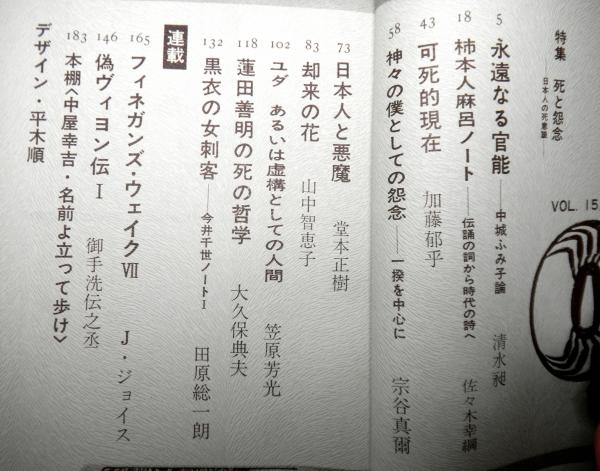 特集 死と怨念
日本人の死意識——
VOL. 15
5 永遠なる官能——中城ふみ子論 清水昶
18 柿本人麻呂ノート——伝誦の詞から時代の詩へ 佐々木幸綱
43 可死的現在 加藤郁乎
58 神々の僕としての怨念——一揆を中心に 宗谷真爾
73 日本人と悪魔 堂本正樹
83 却来の花 山中智恵子
102 ユダ あるいは虚構としての人間 笠原芳光
118 蓮田善明の死の哲学 大久保典夫
132 黒衣の女刺客——今井千世ノートⅠ 田原総一朗
連載
165 フィネガンズ・ウェイク Ⅶ J・ジョイス
146 偽ヴィヨン伝Ⅰ 御手洗伝之丞
183 本棚〈中屋幸吉・名前よ立って歩け〉
デザイン・平木順